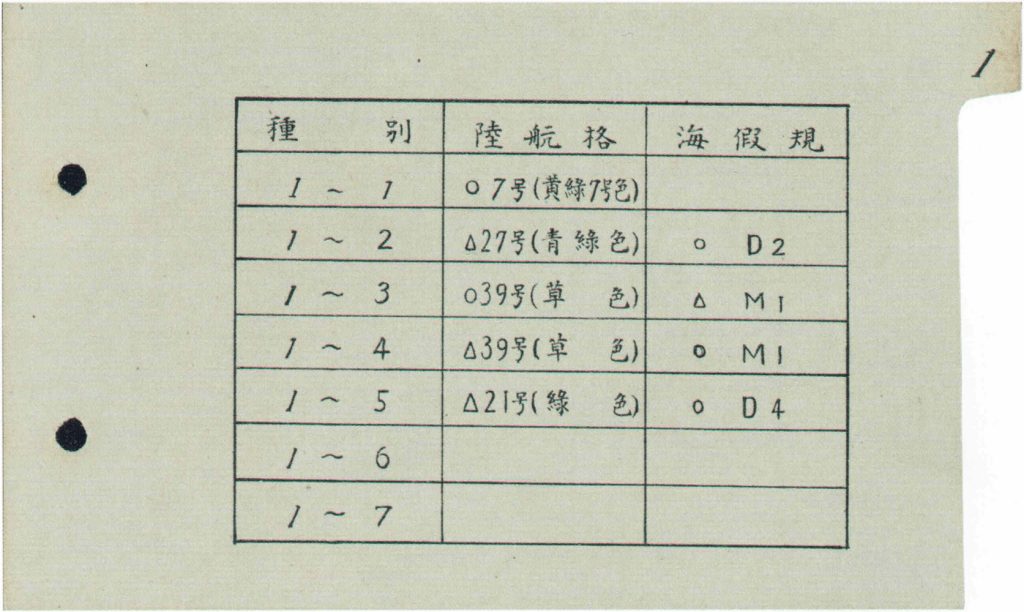 1
種 別 陸航格 海假規
1 ~ 1 ○7号(黄綠7号色)
1 ~ 2 △27号(青綠色) ○ D2
1 ~ 3 ○39号(草 色) △ M1
1 ~ 4 △39号(草 色) ○ M1
1 ~ 5 △21号(綠 色) ○ D4
1 ~ 6
1 ~ 7